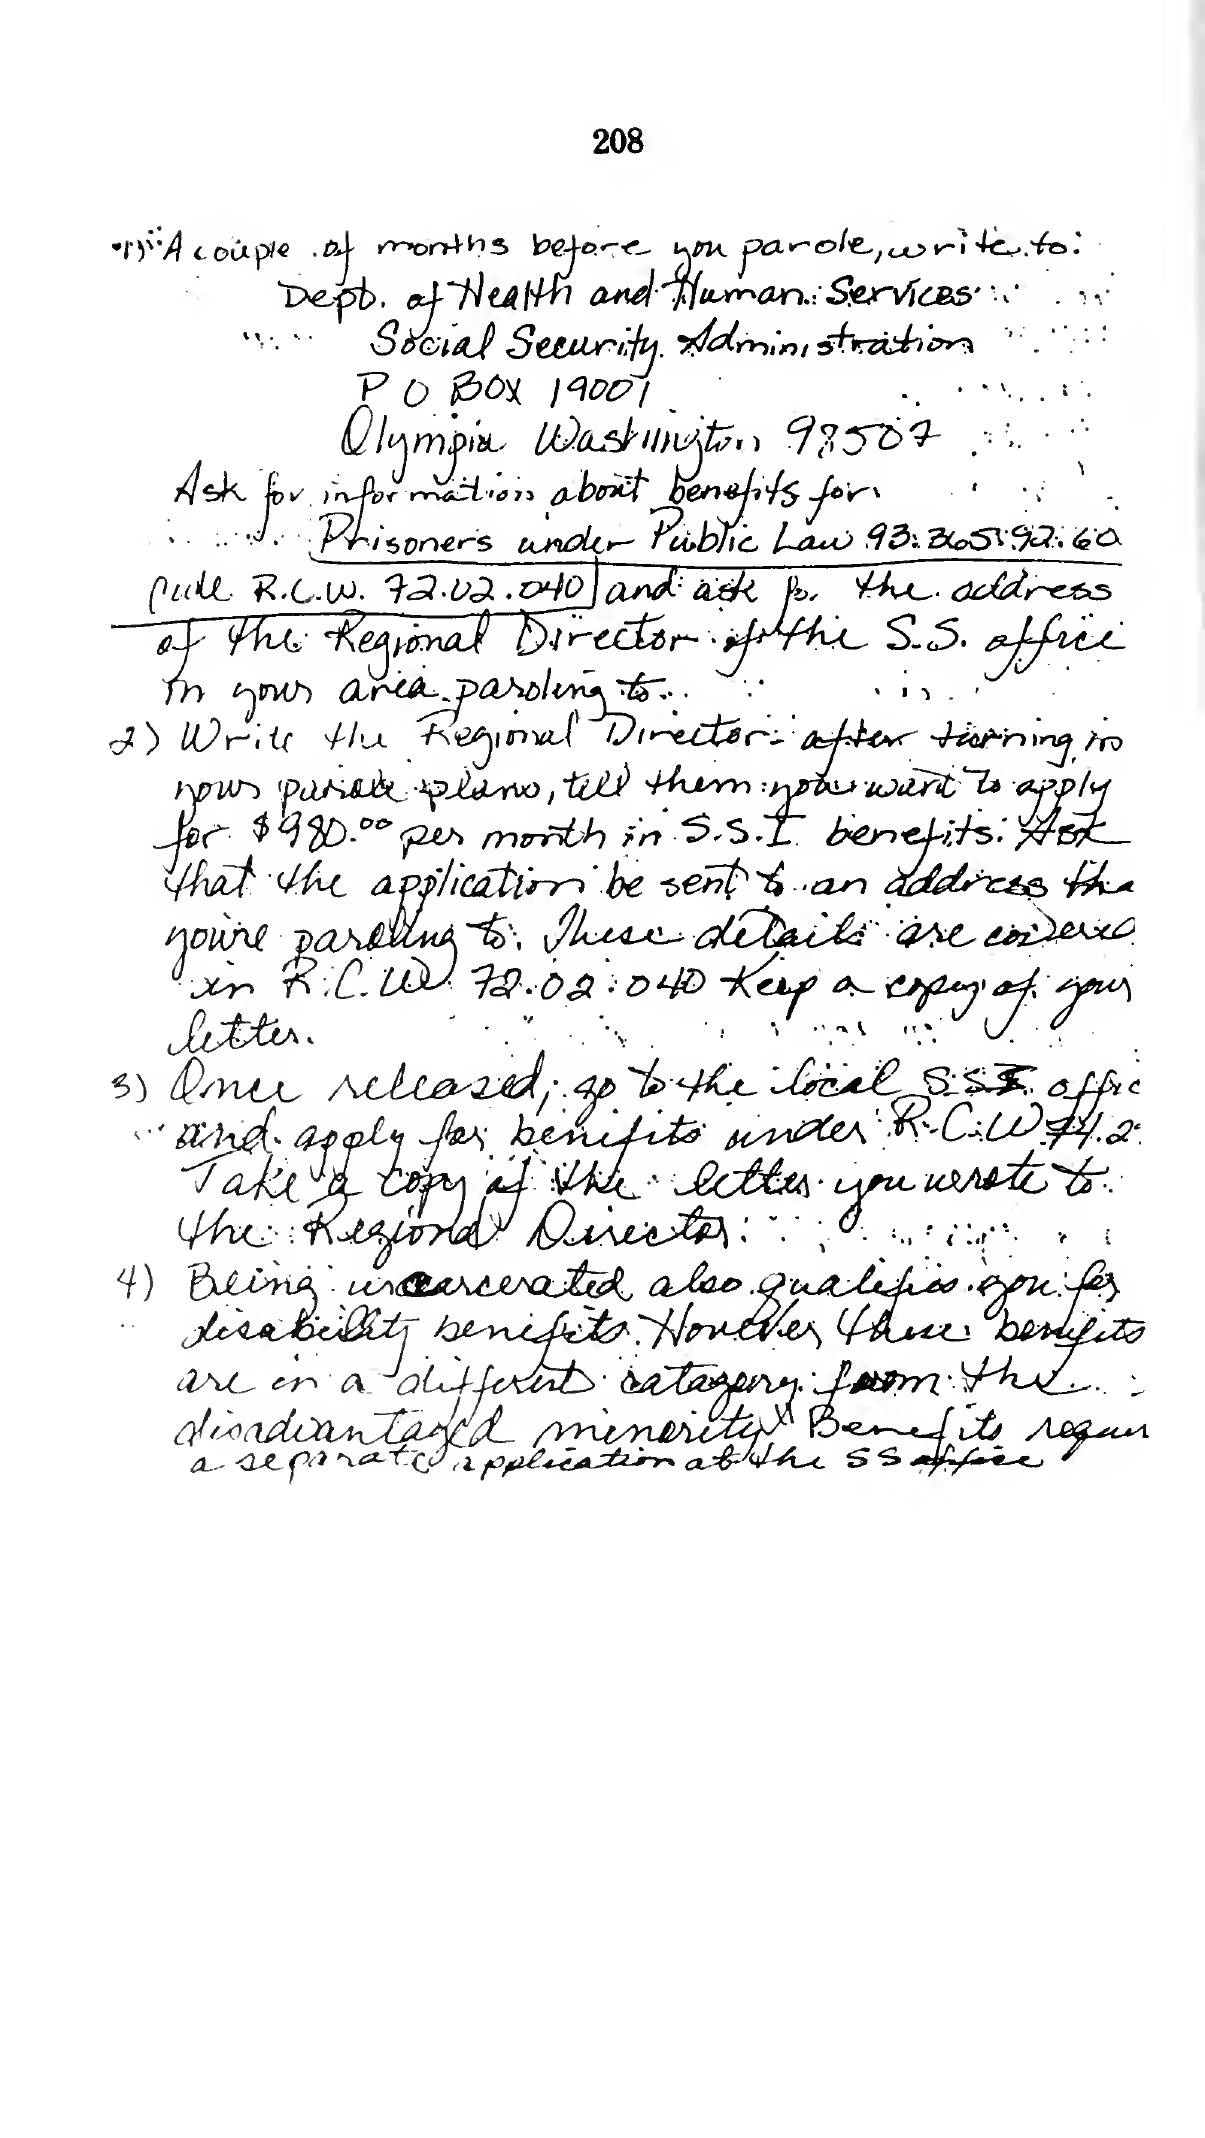 208
1) A couple of months before you parole, write to:
Dept. of Health and Human Services
Social Security Administration
P O BOX 19001
Olympia Washington 98507
Ask for information about benefits for
Prisoners under Public Law 93.365.92.60
rule R.C.W. 72.02.040 and ask for the address
of the Regional Director of the S.S. office
in your area paroling to.
2) Write the Regional Director after turning in
your parole plans, tell them you want to apply
for $980.00 per month in S.S.I benefits. Ask
that the application be sent to an address tha
you're paroling to. These details are covered
in R.C.W. 72.02.040 Keep a copy of your
letter.
3) Once released, go to the local SSI offic
and apply for benefits under R.C.W 74.2
Take a copy of the letter you wrote to
the Regional Director.
4) Being incarcerated also qualifies you for
disability benefits. However these benefits
are in a different catagory from the
disadvantaged minority Benefits requir
a separate application at the SS office